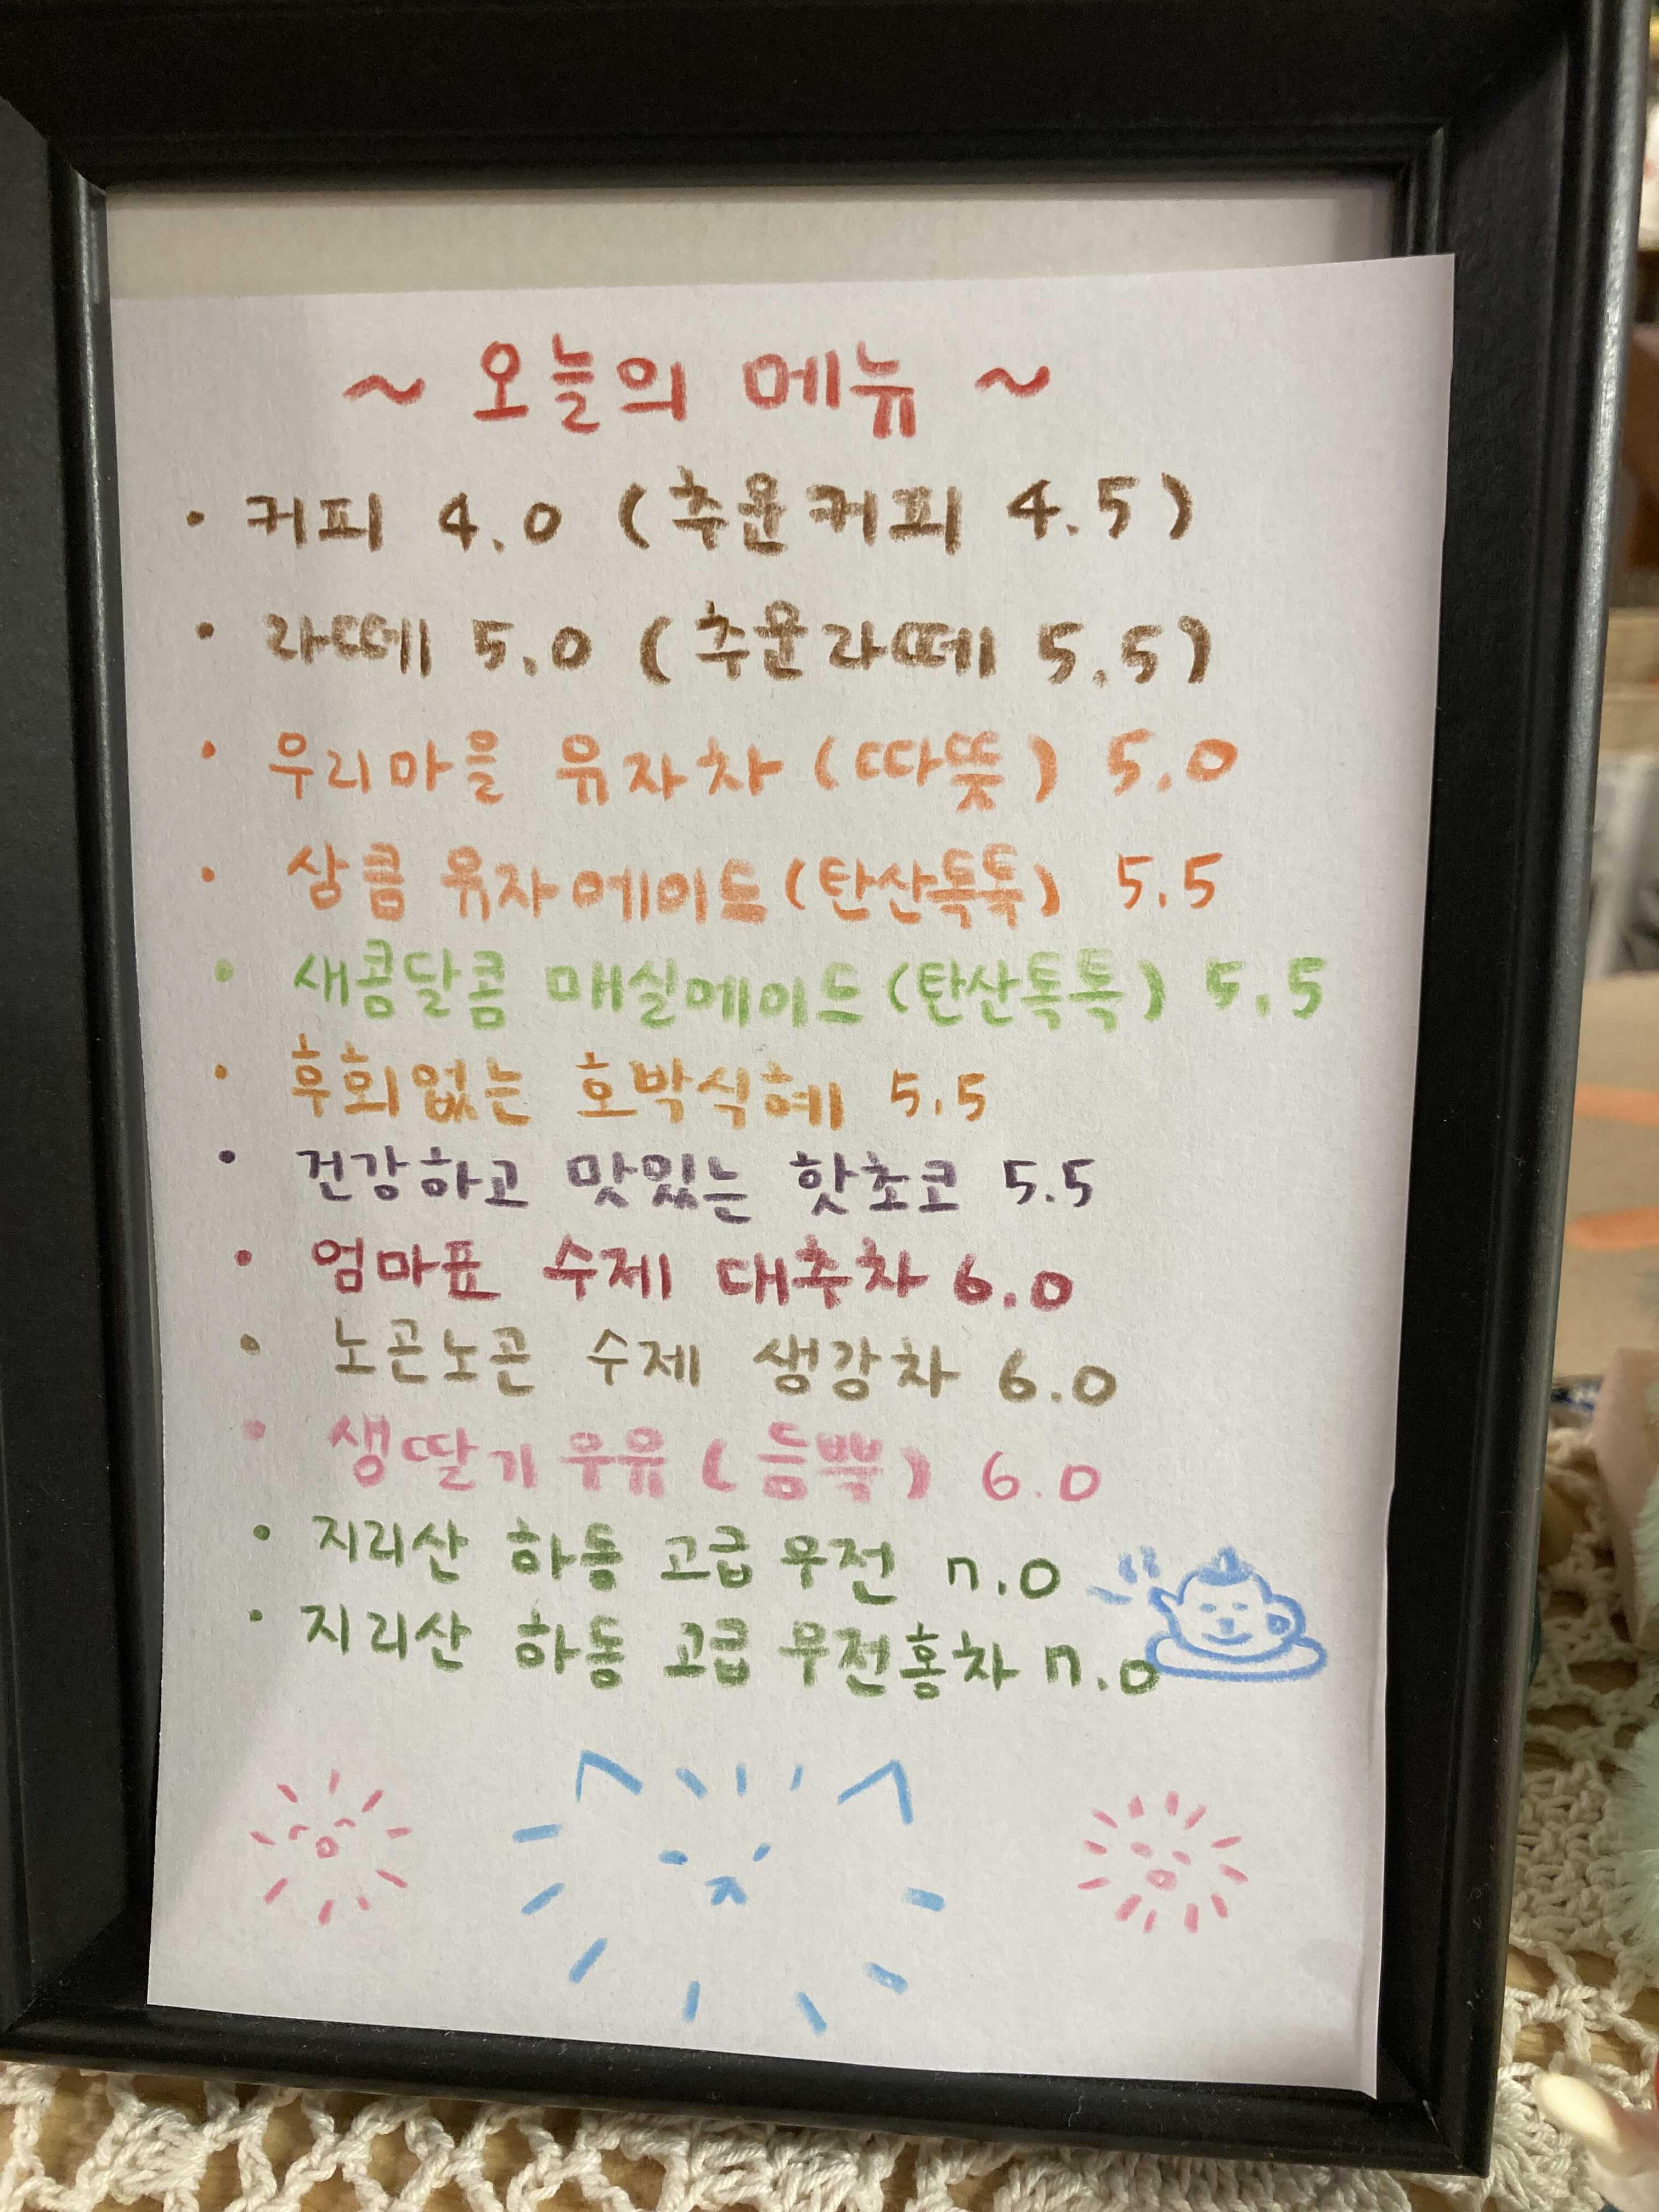 ~ 오늘의 메뉴 ~
· 커피 4.0 (추운커피 4.5)
· 라떼 5.0 (추운라떼 5.5)
· 우리마을 유자차 (따뜻) 5.0
· 상큼 유자에이드 (탄산톡톡) 5.5
· 새콤달콤 매실에이드 (탄산톡톡) 5.5
· 후회없는 호박식혜 5.5
· 건강하고 맛있는 핫초코 5.5
· 엄마표 수제 대추차 6.0
· 노곤노곤 수제 생강차 6.0
· 생딸기우유 (듬뿍) 6.0
· 지리산 하동 고급 우전 7.0
· 지리산 하동 고급 우전홍차 7.0